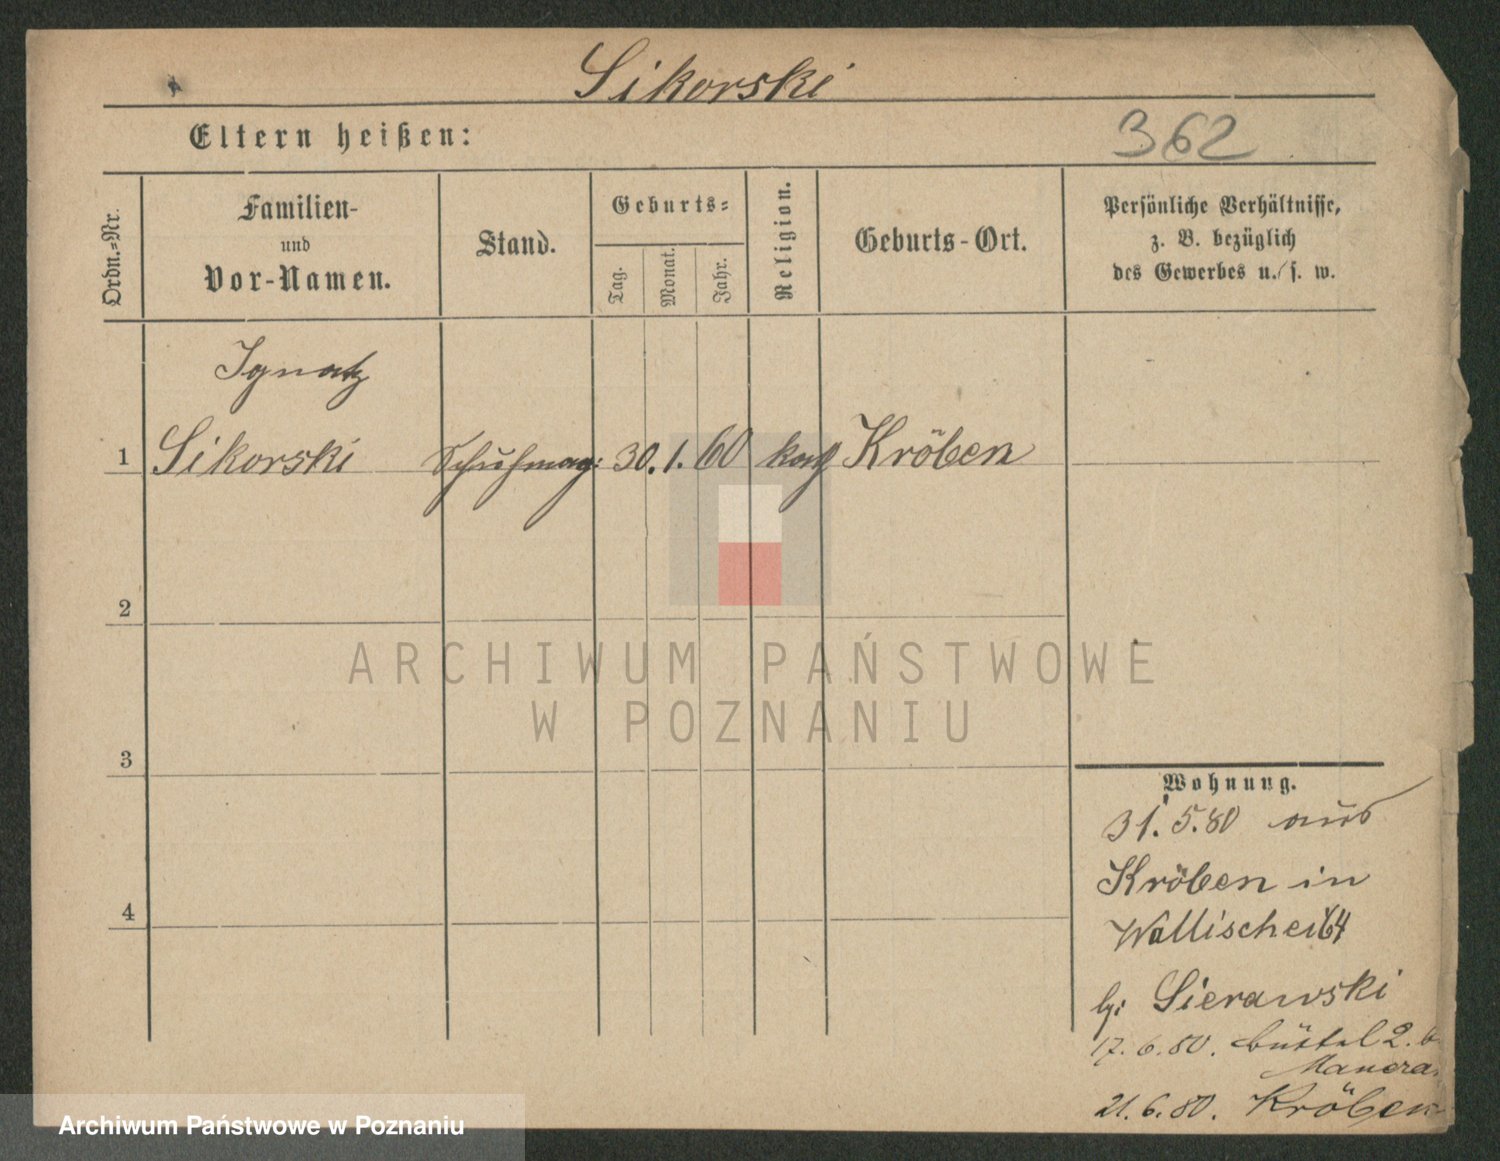 Sikorski
Eltern heißen:
362
Ordn.=Nr.
Familien-
und
Vor-Namen.
Stand.
Geburts=
Tag.
Monat.
Jahr.
Religion.
Geburts-Ort.
Persönliche Verhältnisse,
z. B. bezüglich
des Gewerbes u. s. w.
Ignatz
1 Sikorski Schuhmag: 30. 1. 60 kath Kröben
2
3
4
Wohnung.
31. 5. 80 aus
Kröben in
Wallischei 64
bei Sierawski
17. 6. 80. Büttel 2. b
21. 6. 80. Kröben
ARCHIWUM PAŃSTWOWE
W POZNANIU
Archiwum Państwowe w Poznaniu